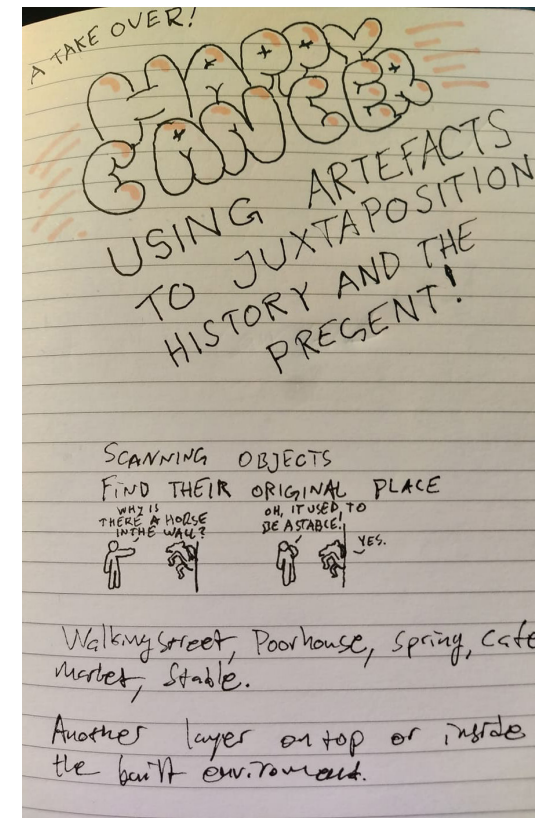 A TAKE OVER!
HAPPY
CANCER
USING ARTEFACTS
TO JUXTAPOSITION
HISTORY AND THE
PRESENT!
SCANNING OBJECTS
FIND THEIR ORIGINAL PLACE
WHY IS
THERE A HORSE
IN THE WALL?
OH, IT USED TO
BE A STABLE!
YES.
Walking street, Poorhouse, Spring, Cafe
Market, Stable.
Another layer on top or inside
the built environment.